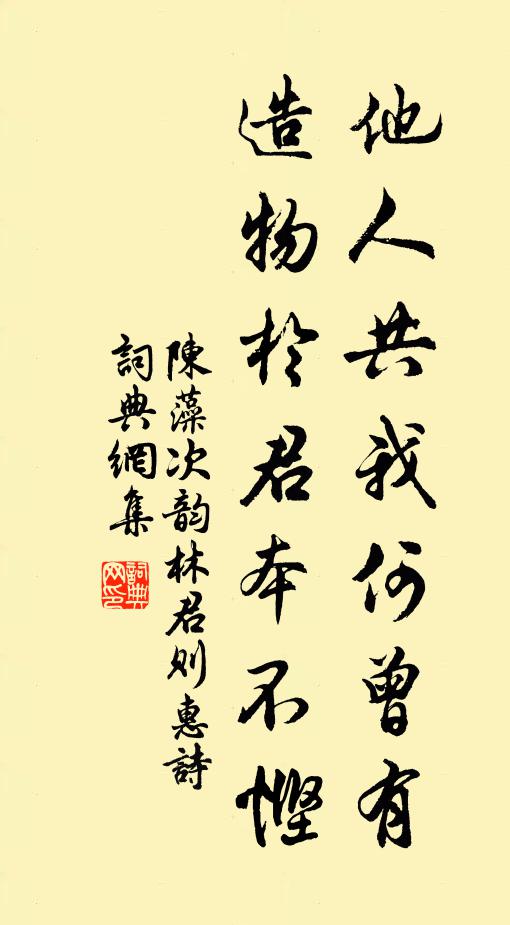 他人共我何曾有
造物於君本不慳
陳藻次韵林君則惠詩
詞典網集
詞典
网印